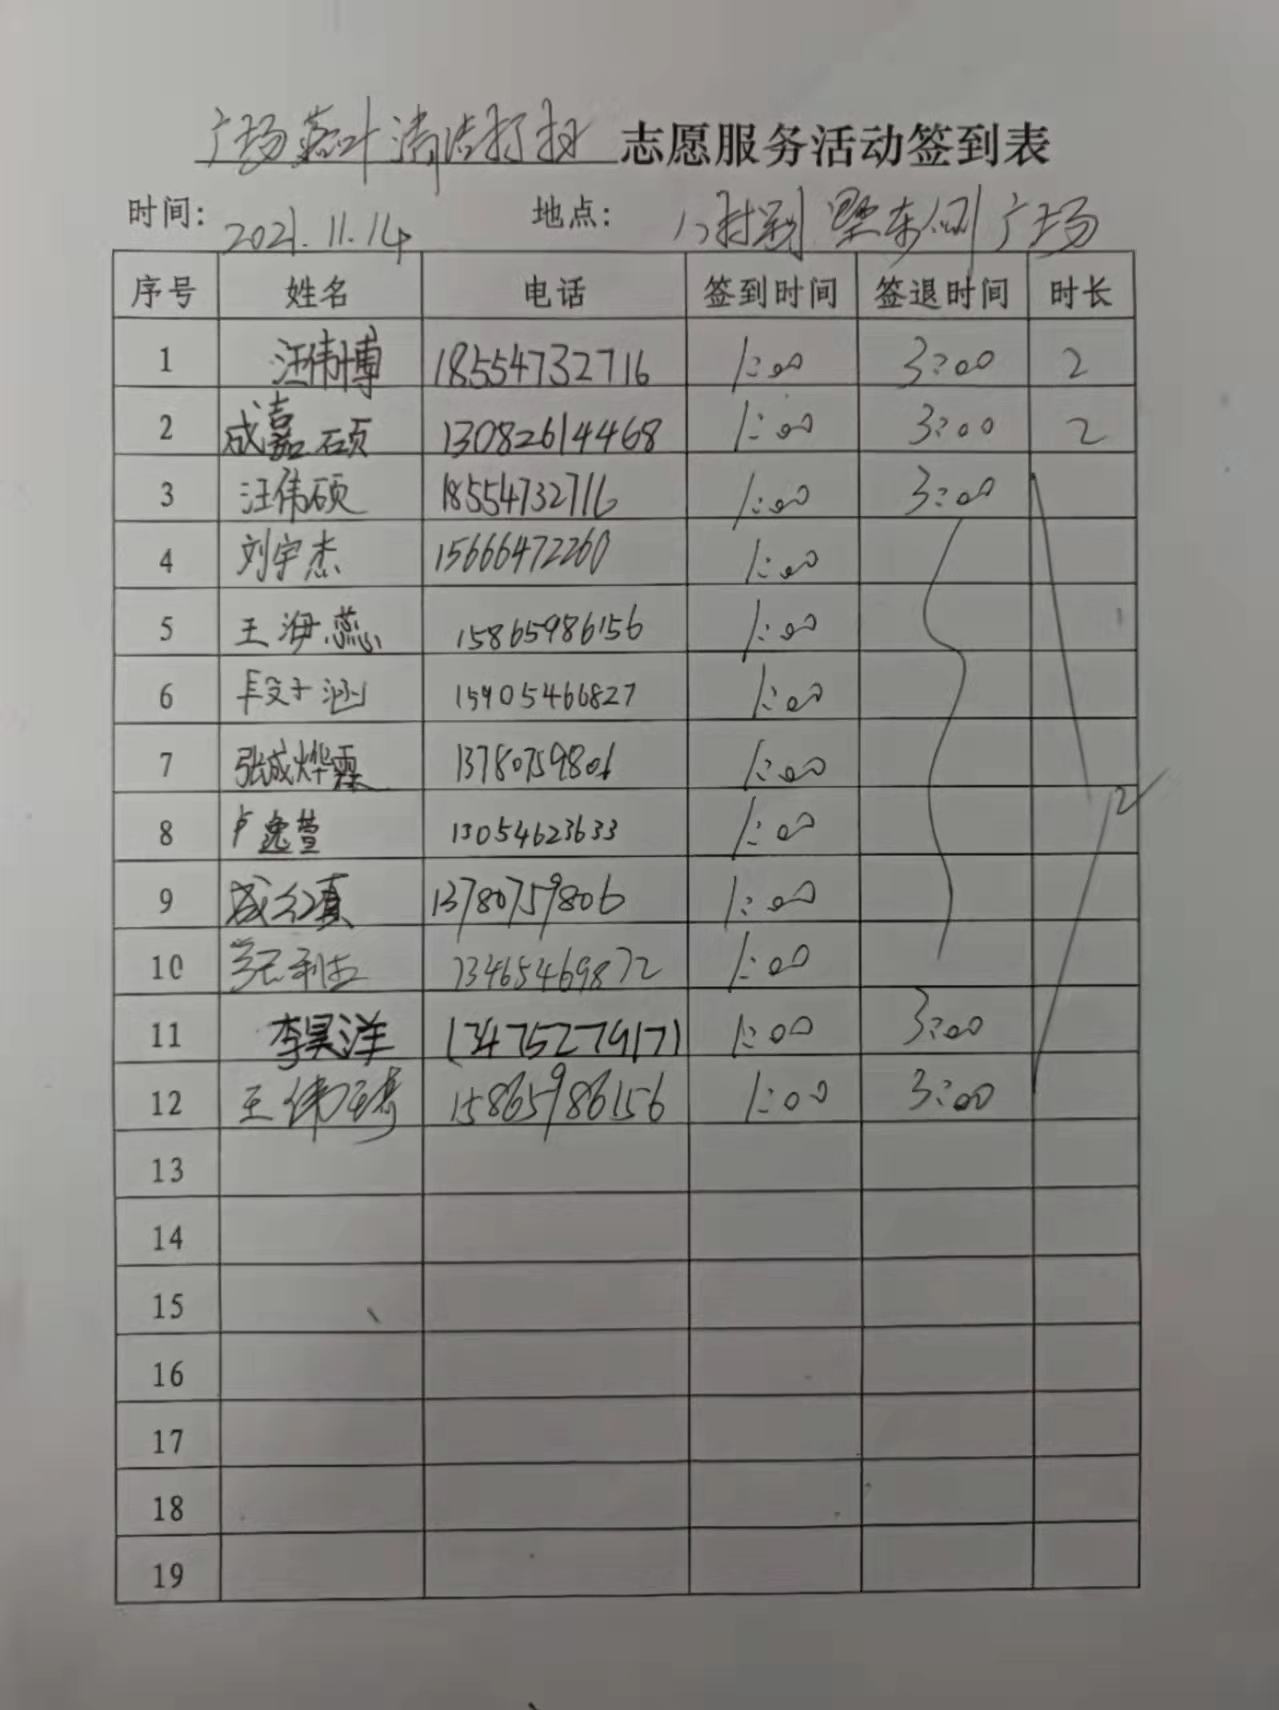 广场落叶清洁打扫 志愿服务活动签到表
时间: 2021.11.14 地点: 东侧广场
序号 姓名 电话 签到时间 签退时间 时长
1 汪伟博 18554732716 1:00 3:00 2
2 成嘉硕 13082614468 1:00 3:00 2
3 汪伟硕 18554732716 1:00 3:00
4 刘宇杰 15666472260 1:00
5 王海蕊 15865986156 1:00
6 段子涵 15905466827 1:00
7 张成烨霖 13780759806 1:00
8 卢逸萱 13054623633 1:00 2
9 成红真 13780759806 1:00
10 13465469872 1:00
11 李昊洋 13475277917 1:00 3:00
12 王伟 15865986156 1:00 3:00
13
14
15
16
17
18
19